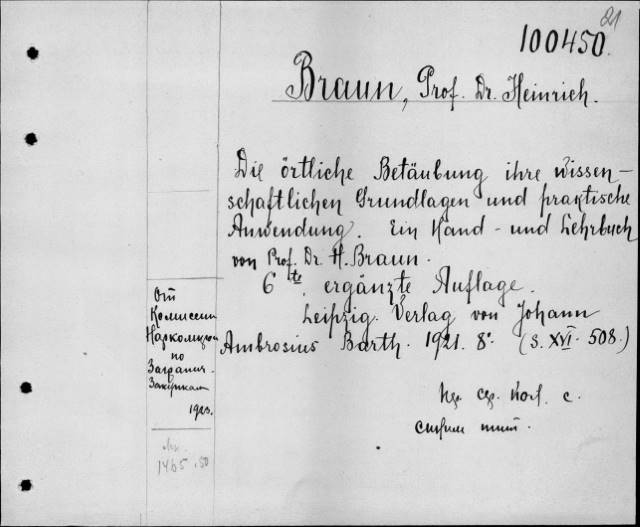 21
100450.
Braun, Prof. Dr. Heinrich.
Die örtliche Betäubung ihre wissen-
schaftlichen Grundlagen und praktische
Anwendung. Ein Hand- und Lehrbuch
von Prof. Dr. H. Braun.
6te ergänzte Auflage.
Leipzig. Verlag von Johann
Ambrosius Barth. 1921. 8°. (S. XVI. 508.)
От
Комиссии
по
Загранич.
Закупкам
1923.
1465.50